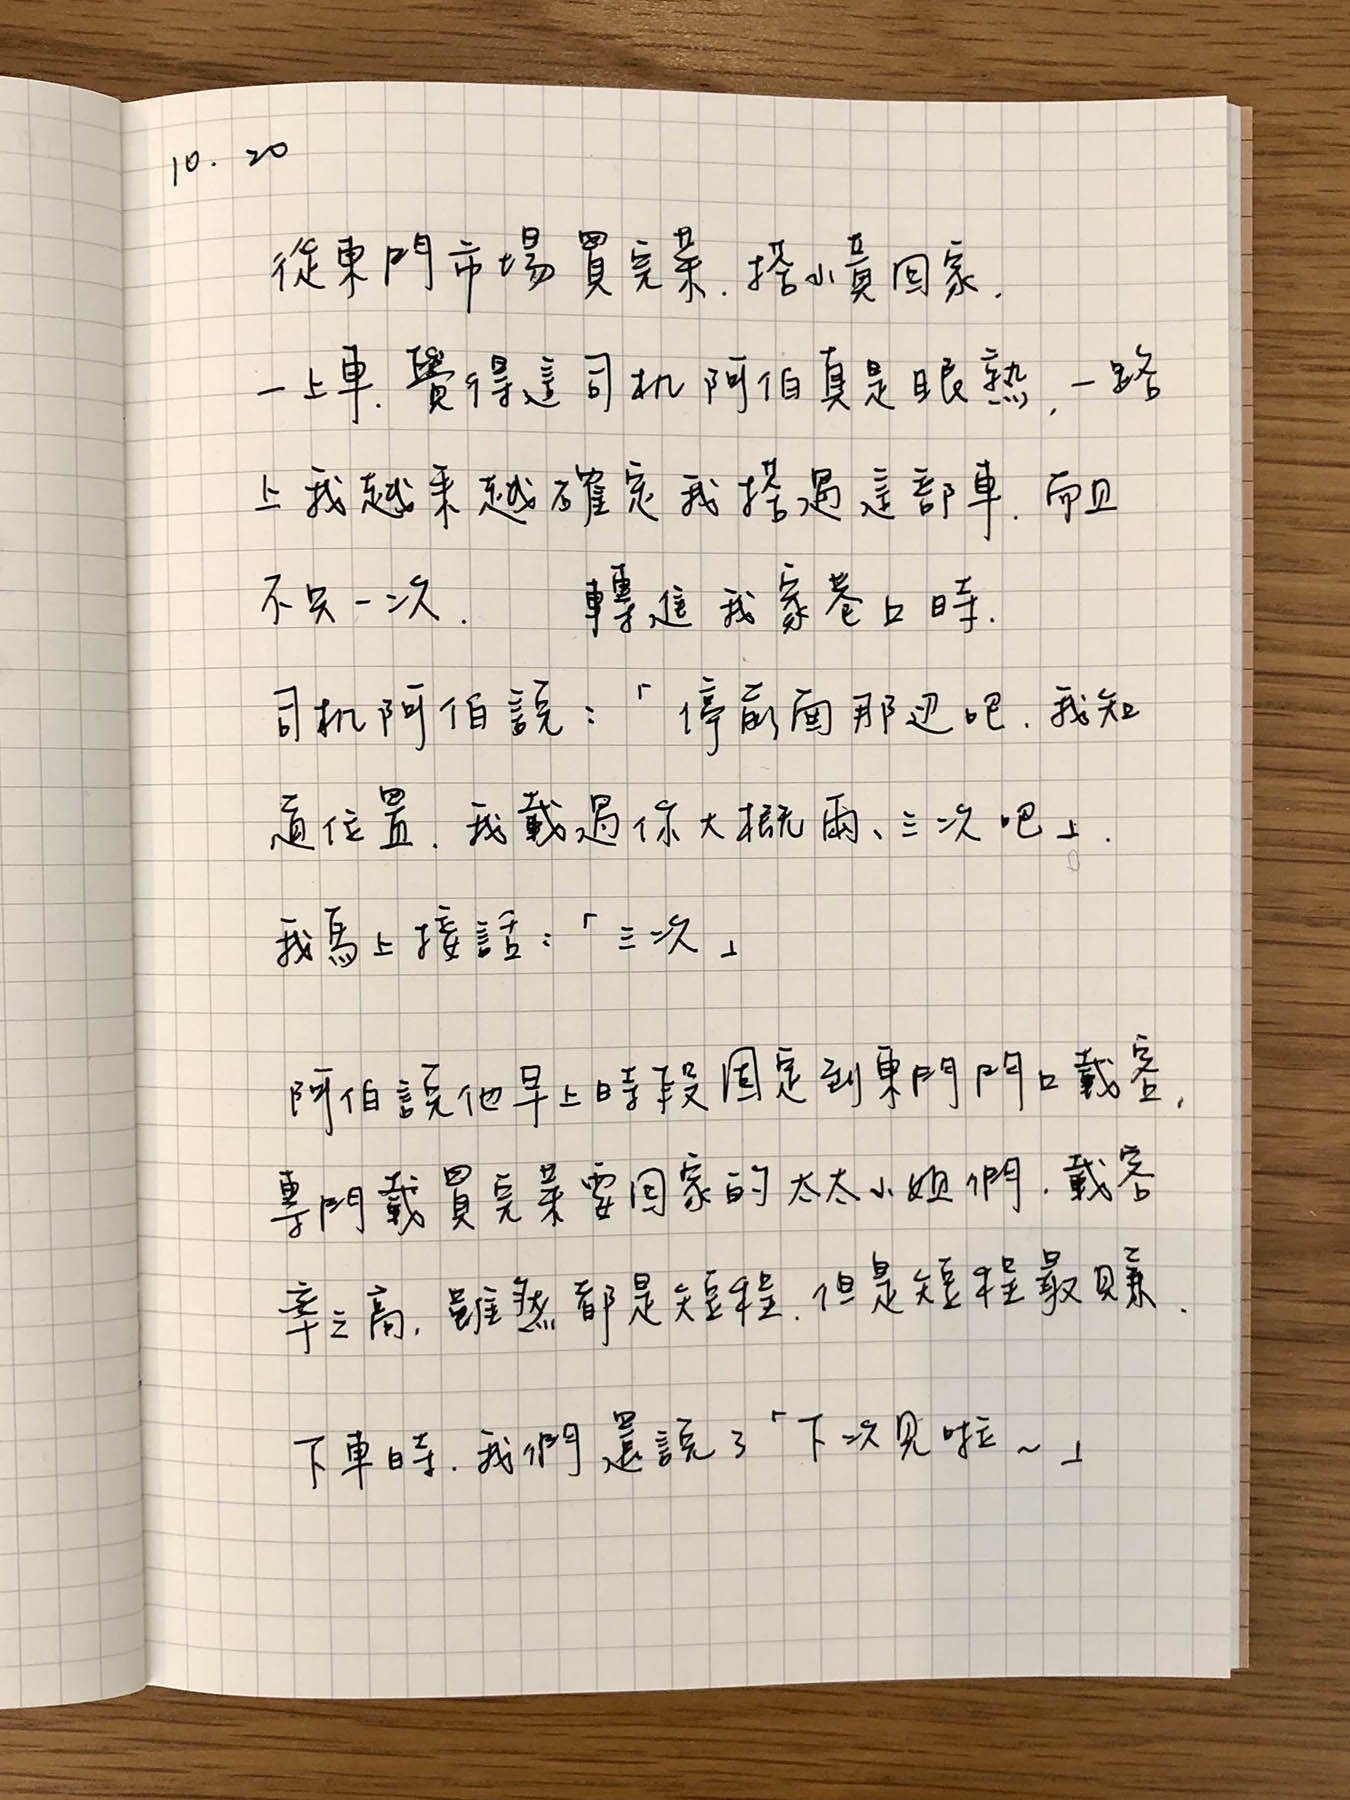 10. 20
從東門市場買完菜.搭小黃回家.
一上車.覺得這司机阿伯真是眼熟,一路
上我越來越確定我搭過這部車.而且
不只一次. 轉進我家巷口時.
司机阿伯說:「停前面那边吧.我知
道位置.我載過你大概兩、三次吧」.
我馬上接話:「三次」
阿伯說他早上時段固定到東門門口載客,
專門載買完菜要回家的太太小姐們.載客
率之高,雖然都是短程.但是短程最賺.
下車時.我們還說了「下次見啦~」